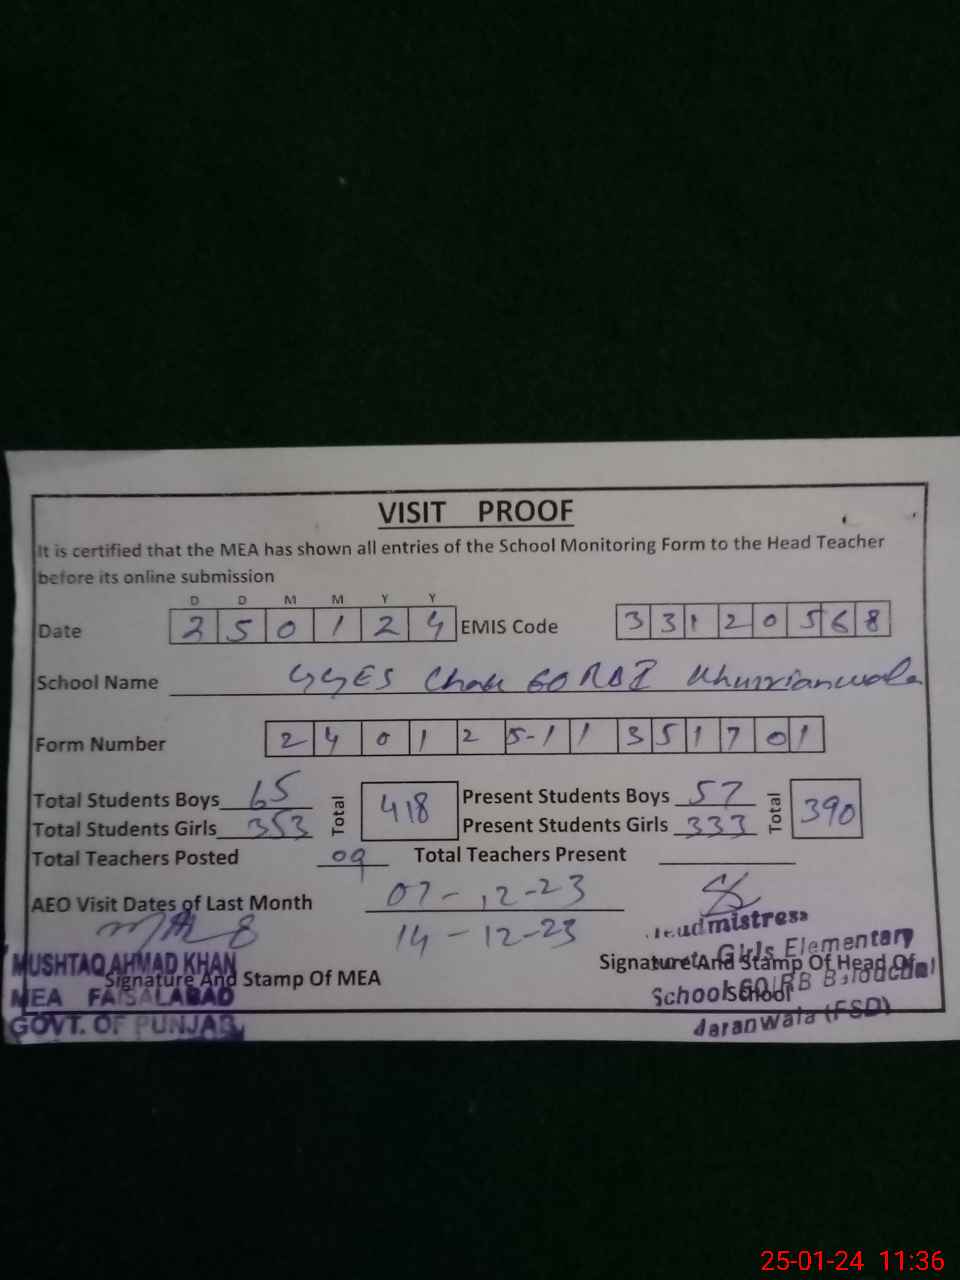 VISIT PROOF
It is certified that the MEA has shown all entries of the School Monitoring Form to the Head Teacher
before its online submission
D D M M Y Y
Date 2 5 0 1 2 4 EMIS Code 3 3 1 2 0 5 6 8
School Name GGES Chak 60 RB I Khurrianwala
Form Number 2 4 0 1 2 5-1 1 3 5 1 7 0 1
Total Students Boys 65 Total 418 Present Students Boys 57 Total 390
Total Students Girls 353 Present Students Girls 333
Total Teachers Posted 09 Total Teachers Present
AEO Visit Dates of Last Month 07-12-23
14-12-23
MUSHTAQ AHMAD KHAN
Signature And Stamp Of MEA
MEA FAISALABAD
GOVT. OF PUNJAB
Headmistress
Girls Elementary
Signature And Stamp Of Head Of
School
School 60 RB
Jaranwala (FSD)
25-01-24 11:36